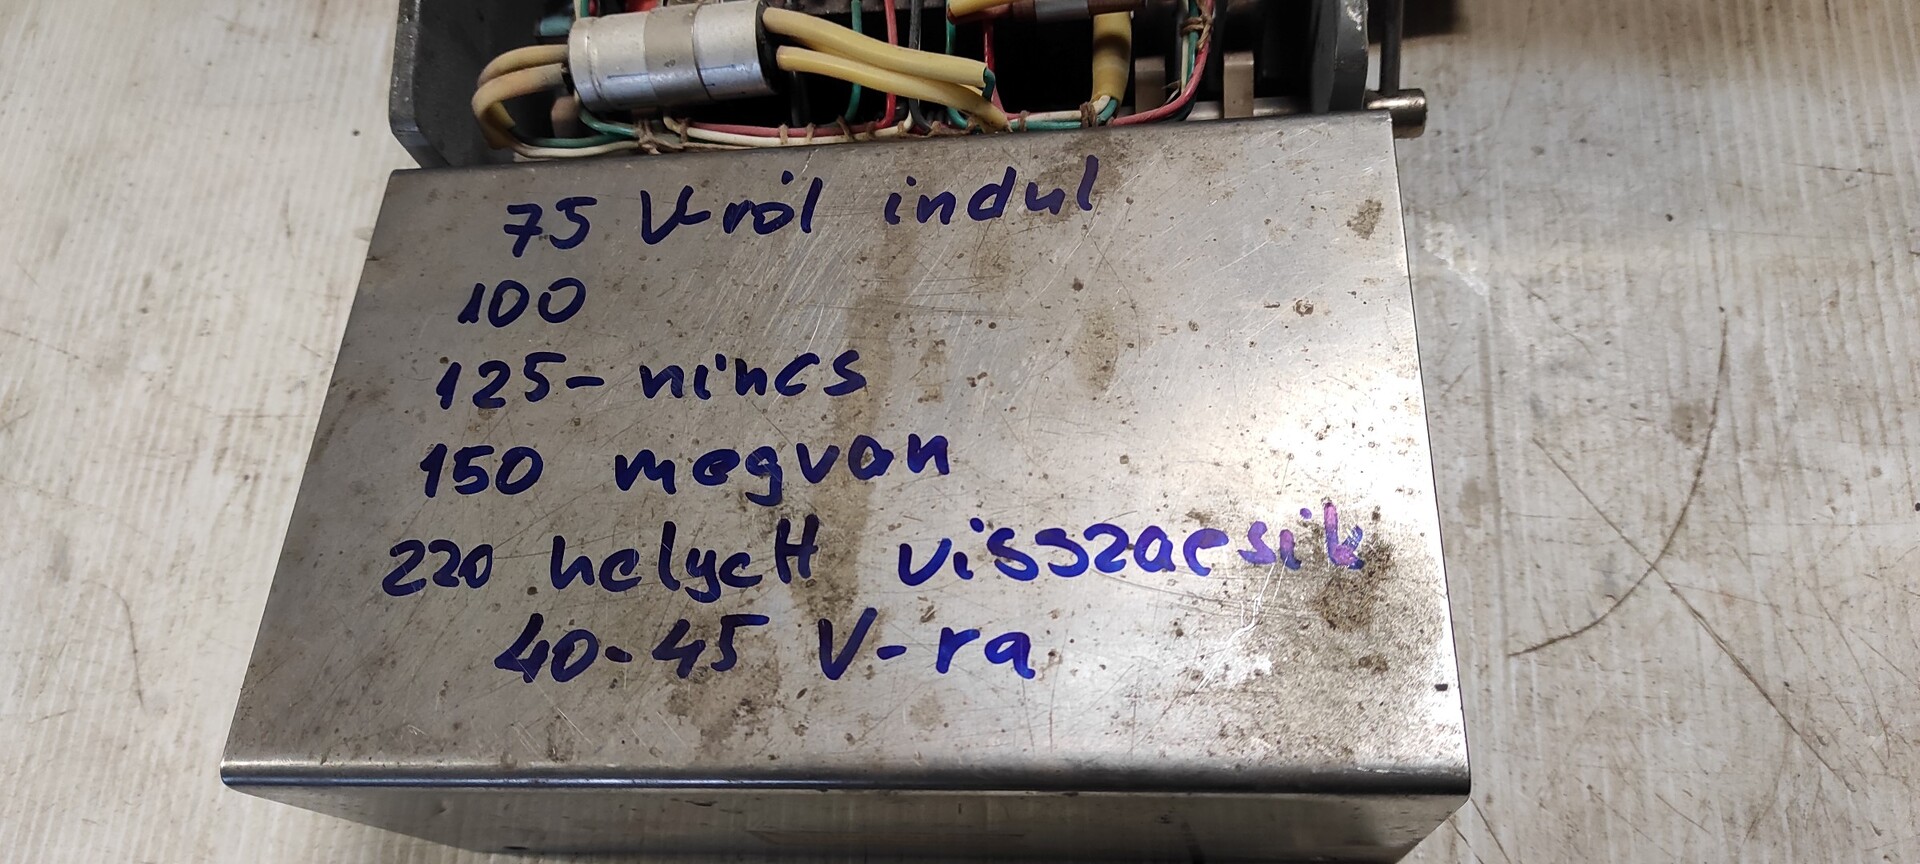 75 V-ról indul
100
125- nincs
150 megvan
220 helyett visszaesik
40-45 V-ra